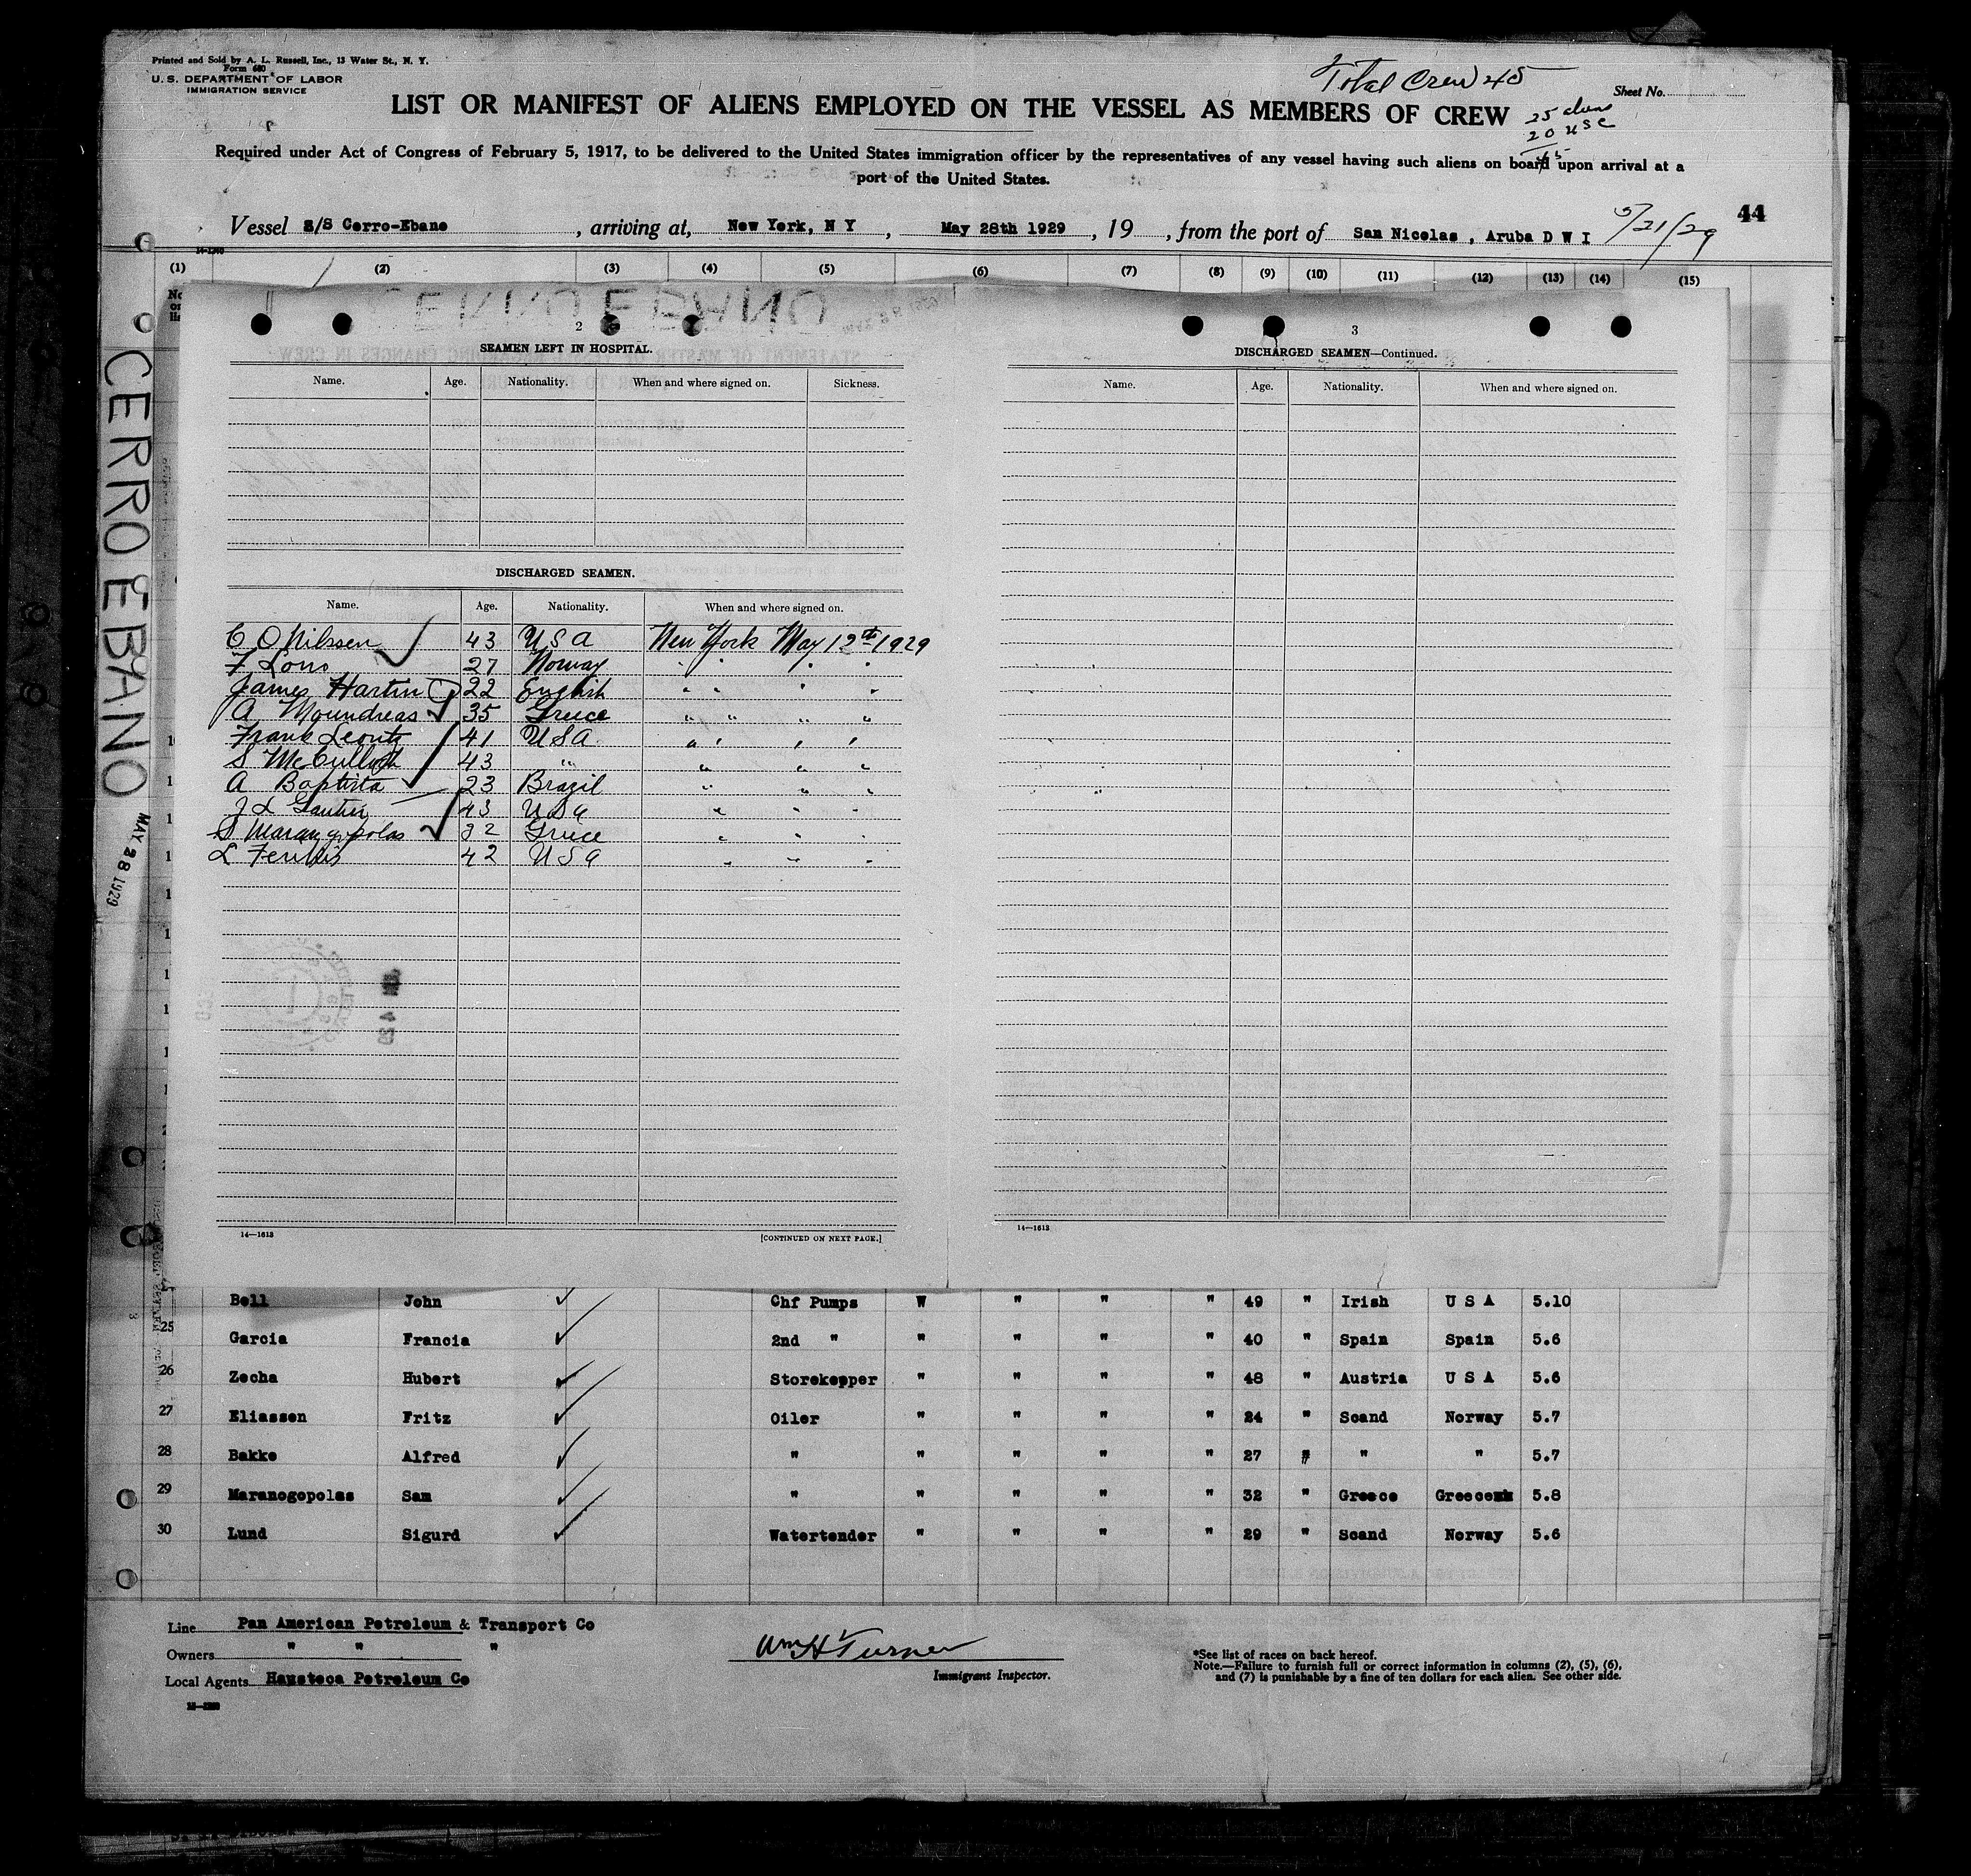 Printed and Sold by A. L. Russell, Inc., 13 Water St., N. Y.
Form 680
U. S. DEPARTMENT OF LABOR
IMMIGRATION SERVICE
Total Crew 45
Sheet No.
LIST OR MANIFEST OF ALIENS EMPLOYED ON THE VESSEL AS MEMBERS OF CREW
25
20 USC
45
Required under Act of Congress of February 5, 1917, to be delivered to the United States immigration officer by the representatives of any vessel having such aliens on board upon arrival at a
port of the United States.
Vessel S/S Cerro-Ebano, arriving at, New York, N Y, May 28th 1929, 19, from the port of San Nicolas, Aruba D W I 5/21/29 44
(1) (2) (3) (4) (5) (6) (7) (8) (9) (10) (11) (12) (13) (14) (15)
CERRO EBANO
MAY 28 1929
2
SEAMEN LEFT IN HOSPITAL.
Name. Age. Nationality. When and where signed on. Sickness.
DISCHARGED SEAMEN.
Name. Age. Nationality. When and where signed on.
C O Nilssen 43 USA New York May 12th 1929
F Lons 27 Norway " " " "
James Hartin 22 English " " " "
A Moundreas 35 Greece " " " "
Frank Leontz 41 USA " " " "
S McCulloch 43 " " " "
A Baptista 23 Brazil " " "
J L Gautier 43 USA " " "
S Marangopolas 32 Greece " " "
L 42 USA " " "
14—1613
[CONTINUED ON NEXT PAGE.]
3
DISCHARGED SEAMEN—Continued.
Name. Age. Nationality. When and where signed on.
14—1613
Bell John Chf Pumps W " " " 49 " Irish U S A 5.10
25 Garcia Francia 2nd " " " " " 40 " Spain Spain 5.6
26 Zecha Hubert Storekepper " " " " 48 " Austria U S A 5.6
27 Eliassen Fritz Oiler " " " " 24 " Scand Norway 5.7
28 Bakke Alfred " " " " " 27 " " " 5.7
29 Maranogopolas Sam " " " " " 32 " Greece Greece 5.8
30 Lund Sigurd Watertender " " " " 29 " Scand Norway 5.6
Line Pan American Petroleum & Transport Co
Owners " " "
Local Agents Hausteca Petroleum Co
Wm H Turner
Immigrant Inspector.
*See list of races on back hereof.
Note.—Failure to furnish full or correct information in columns (2), (5), (6),
and (7) is punishable by a fine of ten dollars for each alien. See other side.